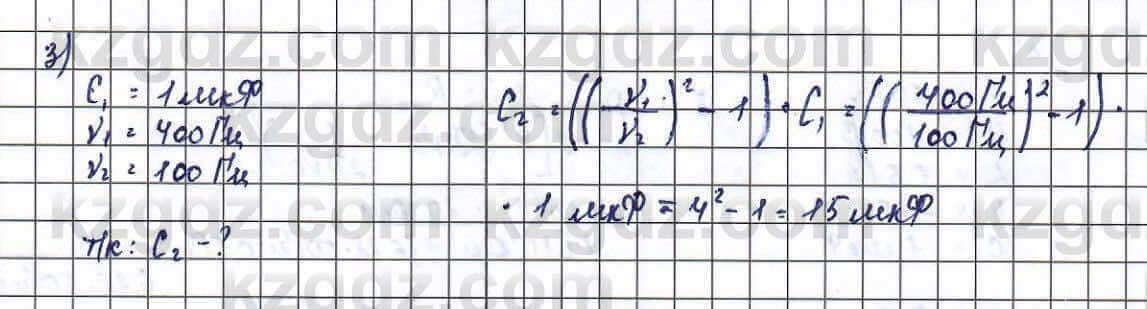 3)
C₁ = 1 мкФ
ν₁ = 400 Гц
ν₂ = 100 Гц
Тк: C₂ - ?
C₂ = ((ν₁/ν₂)² - 1) · C₁ = ((400 Гц/100 Гц)² - 1) ·
· 1 мкФ = 4² - 1 = 15 мкФ
kzgdz.com kzgdz.com kzgdz.com
kzgdz.com kzgdz.com
kzgdz.com kzgdz.com kzgdz.com
kzgdz.com kzgdz.com